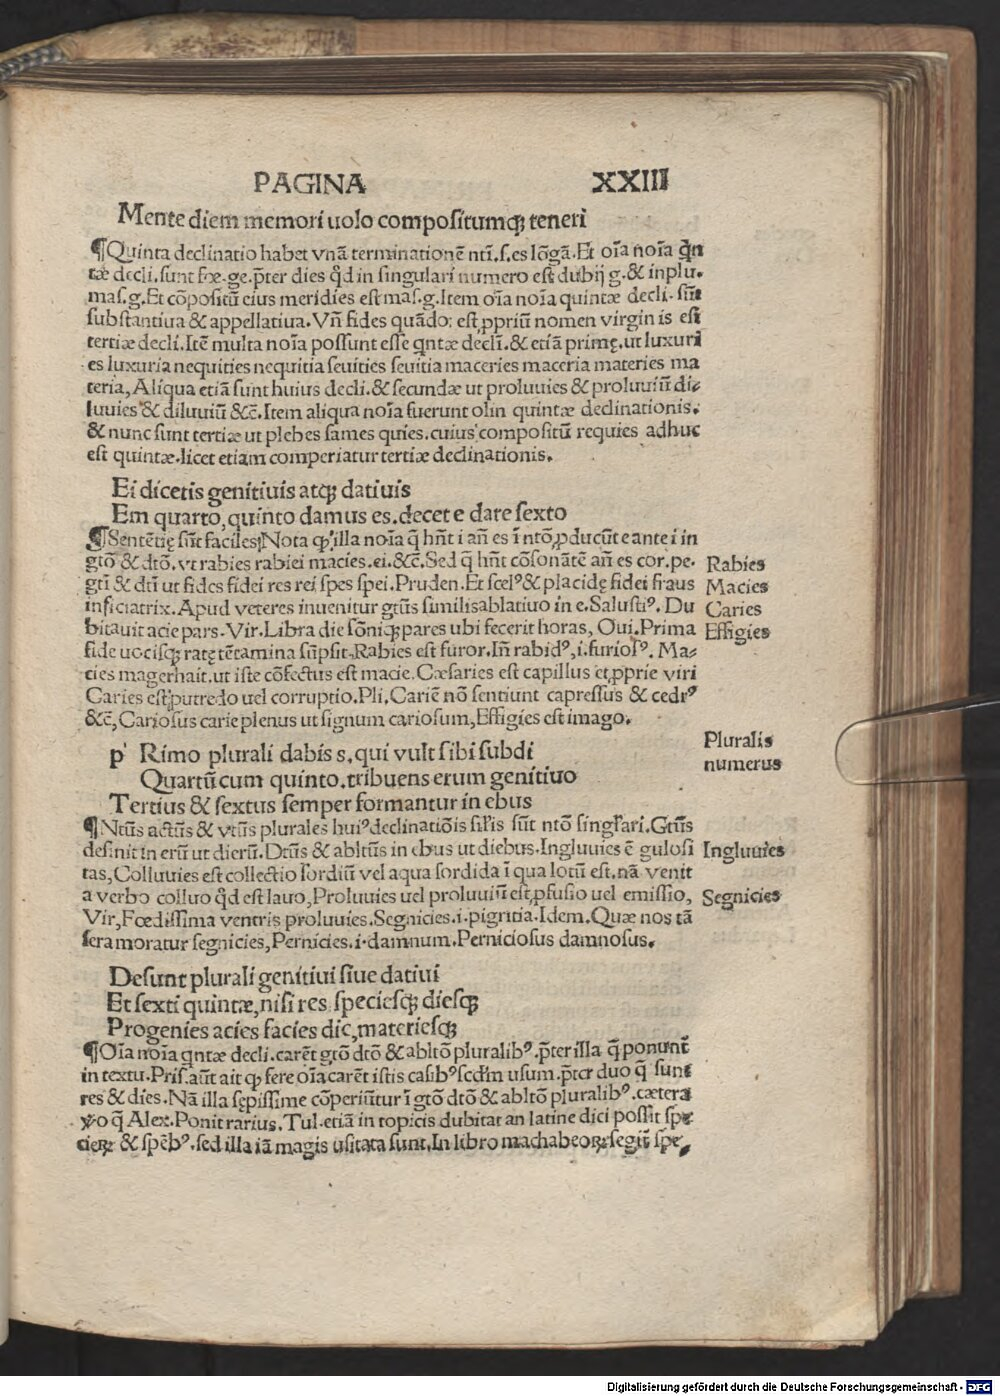 PAGINA XXIII
Mente diem memori uolo compositumqꝫ teneri
¶Quinta declinatio habet vnã terminationẽ nti̅.ſ.es lõgã.Et oi̅a noi̅a qn̅
tæ decli.ſunt fœ.ge.p̅ter dies qd̅ in ſingulari numero eſt dubij g.& inplu.
maſ.g.Et cõpoſitũ eius meridies eſt maſ.g.Item oi̅a noi̅a quintæ decli.ſũt
ſubſtantiua & appellatiua.Vñ fides quãdo: eſt ꝓpriũ nomen virginis eſt
tertiæ decli.Itẽ multa noi̅a poſſunt eſſe qn̅tæ decli̅.& etiã primę.ut luxuri
es luxuria nequities nequitia ſeuities ſeuitia maceries maceria materies ma
teria,Aliqua etiã ſunt huius decli.& ſecundæ ut proluuies & proluuiũ di⸗
luuies & diluuiũ &c̅.Item aliqua noi̅a fuerunt olin quintæ declinationis.
& nunc ſunt tertiæ ut plebes fames quies.cuius compoſitũ requies adhuc
eſt quintæ.licet etiam comperiatur tertiæ declinationis.
Ei dicetis genitiuis atqꝫ datiuis
Em quarto,quinto damus es.decet e dare ſexto
¶Sentẽtię ſũt faciles!Nota ꝙ illa noi̅a q̅ hn̅t i an̅ es i̅ ntõ,ꝓducũt e ante i in
gtõ & dtõ.vt rabies rabiei macies.ei.&c̅.Sed q̅ hn̅t cõſonãtẽ an̅ es cor.pe.
gti̅ & dti̅ ut fides fidei res rei ſpes ſpei.Pruden.Et ſcelꝰ & placidę fidei fraus
inficiatrix.Apud veteres inuenitur gtũs ſimilis ablatiuo in e.Saluſtiꝰ.Du
bitauit acie pars.Vir.Libra die ſõniqꝫ pares ubi fecerit horas, Oui.Prima
fide uociſqꝫ ratę tẽtamina ſũpſit,Rabies eſt furor.In̅ rabidꝰ,i.furioſꝰ. Ma⸗
cies magerhait.ut iſte cõfectus eſt macie.Cæſaries eſt capillus et ꝓprie viri
Caries eſt putredo uel corruptio.Pli.Cariẽ nõ ſentiunt capreſſus & cedrꝰ
&c̅,Carioſus carie plenus ut ſignum carioſum,Effigies eſt imago.
Rabies
Macies
Caries
Effigies
p Rimo plurali dabis s.qui vult ſibi ſubdi
Quartũ cum quinto.tribuens erum genitiuo
Tertius & ſextus ſemper formantur in ebus
Pluralis
numerus
¶Ntũs actũs & vtũs plurales huiꝰ declinatiõis ſil̅es ſũt ntõ ſingl̅ari.Gtũs
deſinit in erũ ut dierũ.Dtũs & abltũs in ebus ut diebus.Ingluuies ẽ guloſi
tas,Colluuies eſt collectio ſordiũ vel aqua ſordida i̅ qua lotũ eſt.nã venit
a verbo colluo qd̅ eſt lauo,Proluuies uel proluuiũ eſt ꝓfuſio uel emiſſio,
Vir,Fœdiſſima ventris proluuies.Segnicies.i.pigritia.Idem.Quæ nos tã
ſera moratur ſegnicies,Pernicies.i.damnum.Pernicioſus damnoſus.
Ingluuies
Segnicies
Deſunt plurali genitiui ſiue datiui
Et ſexti quintæ,niſi res ſpecieſqꝫ dieſqꝫ
Progenies acies facies dic,materieſqꝫ
¶Oi̅a noi̅a qn̅tæ decli.carẽt gtõ dtõ & abltõ pluralibꝰ.p̅ter illa q̅ ponunt̅
in textu.Priſ.aũt ait ꝙ fere oi̅a carẽt iſtis caſibꝰ ſcd̅m uſum.p̅ter duo q̅ ſunt
res & dies.Nã illa ſępiſſime cõperiũtur i̅ gtõ dtõ & abltõ pluralibꝰ.cætera
vo q̅ Alex.Ponit rarius.Tul.etiã in topicis dubitat an latine dici poſſit ſpe
cieꝝ & ſpẽbꝰ.ſed illa iã magis uſitata ſunt.In libro machabeoꝝ ſegit̅ ſpe,
Digitalisierung gefördert durch die Deutsche Forschungsgemeinschaft - DFG